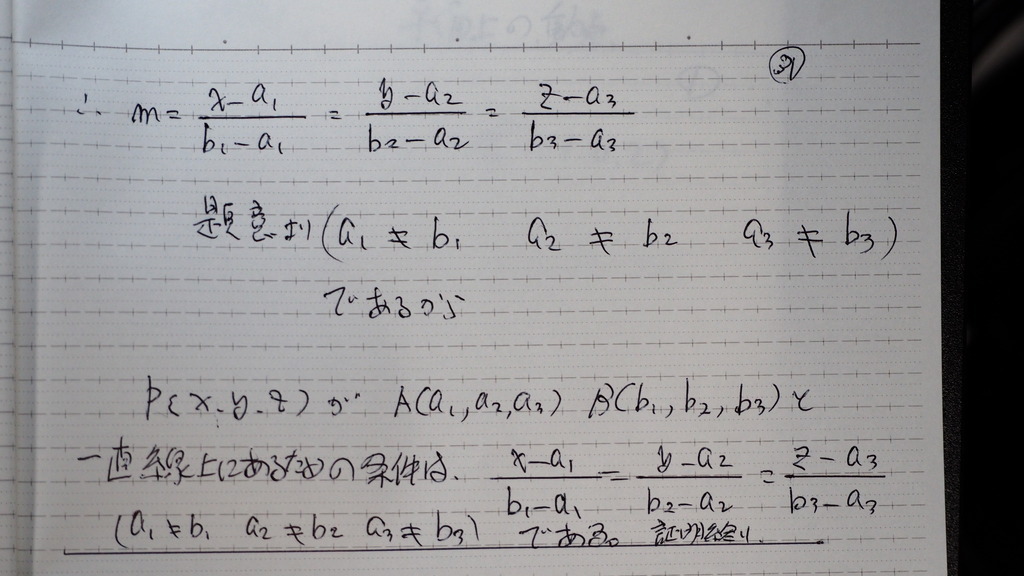 ∴ m = (x-a₁)/(b₁-a₁) = (y-a₂)/(b₂-a₂) = (z-a₃)/(b₃-a₃)
題意より (a₁≠b₁ a₂≠b₂ a₃≠b₃)
であるから
P(x.y.z)が A(a₁,a₂,a₃) B(b₁,b₂,b₃)と
一直線上にあるための条件は、(x-a₁)/(b₁-a₁) = (y-a₂)/(b₂-a₂) = (z-a₃)/(b₃-a₃)
(a₁≠b₁ a₂≠b₂ a₃≠b₃) である。 証明終り.